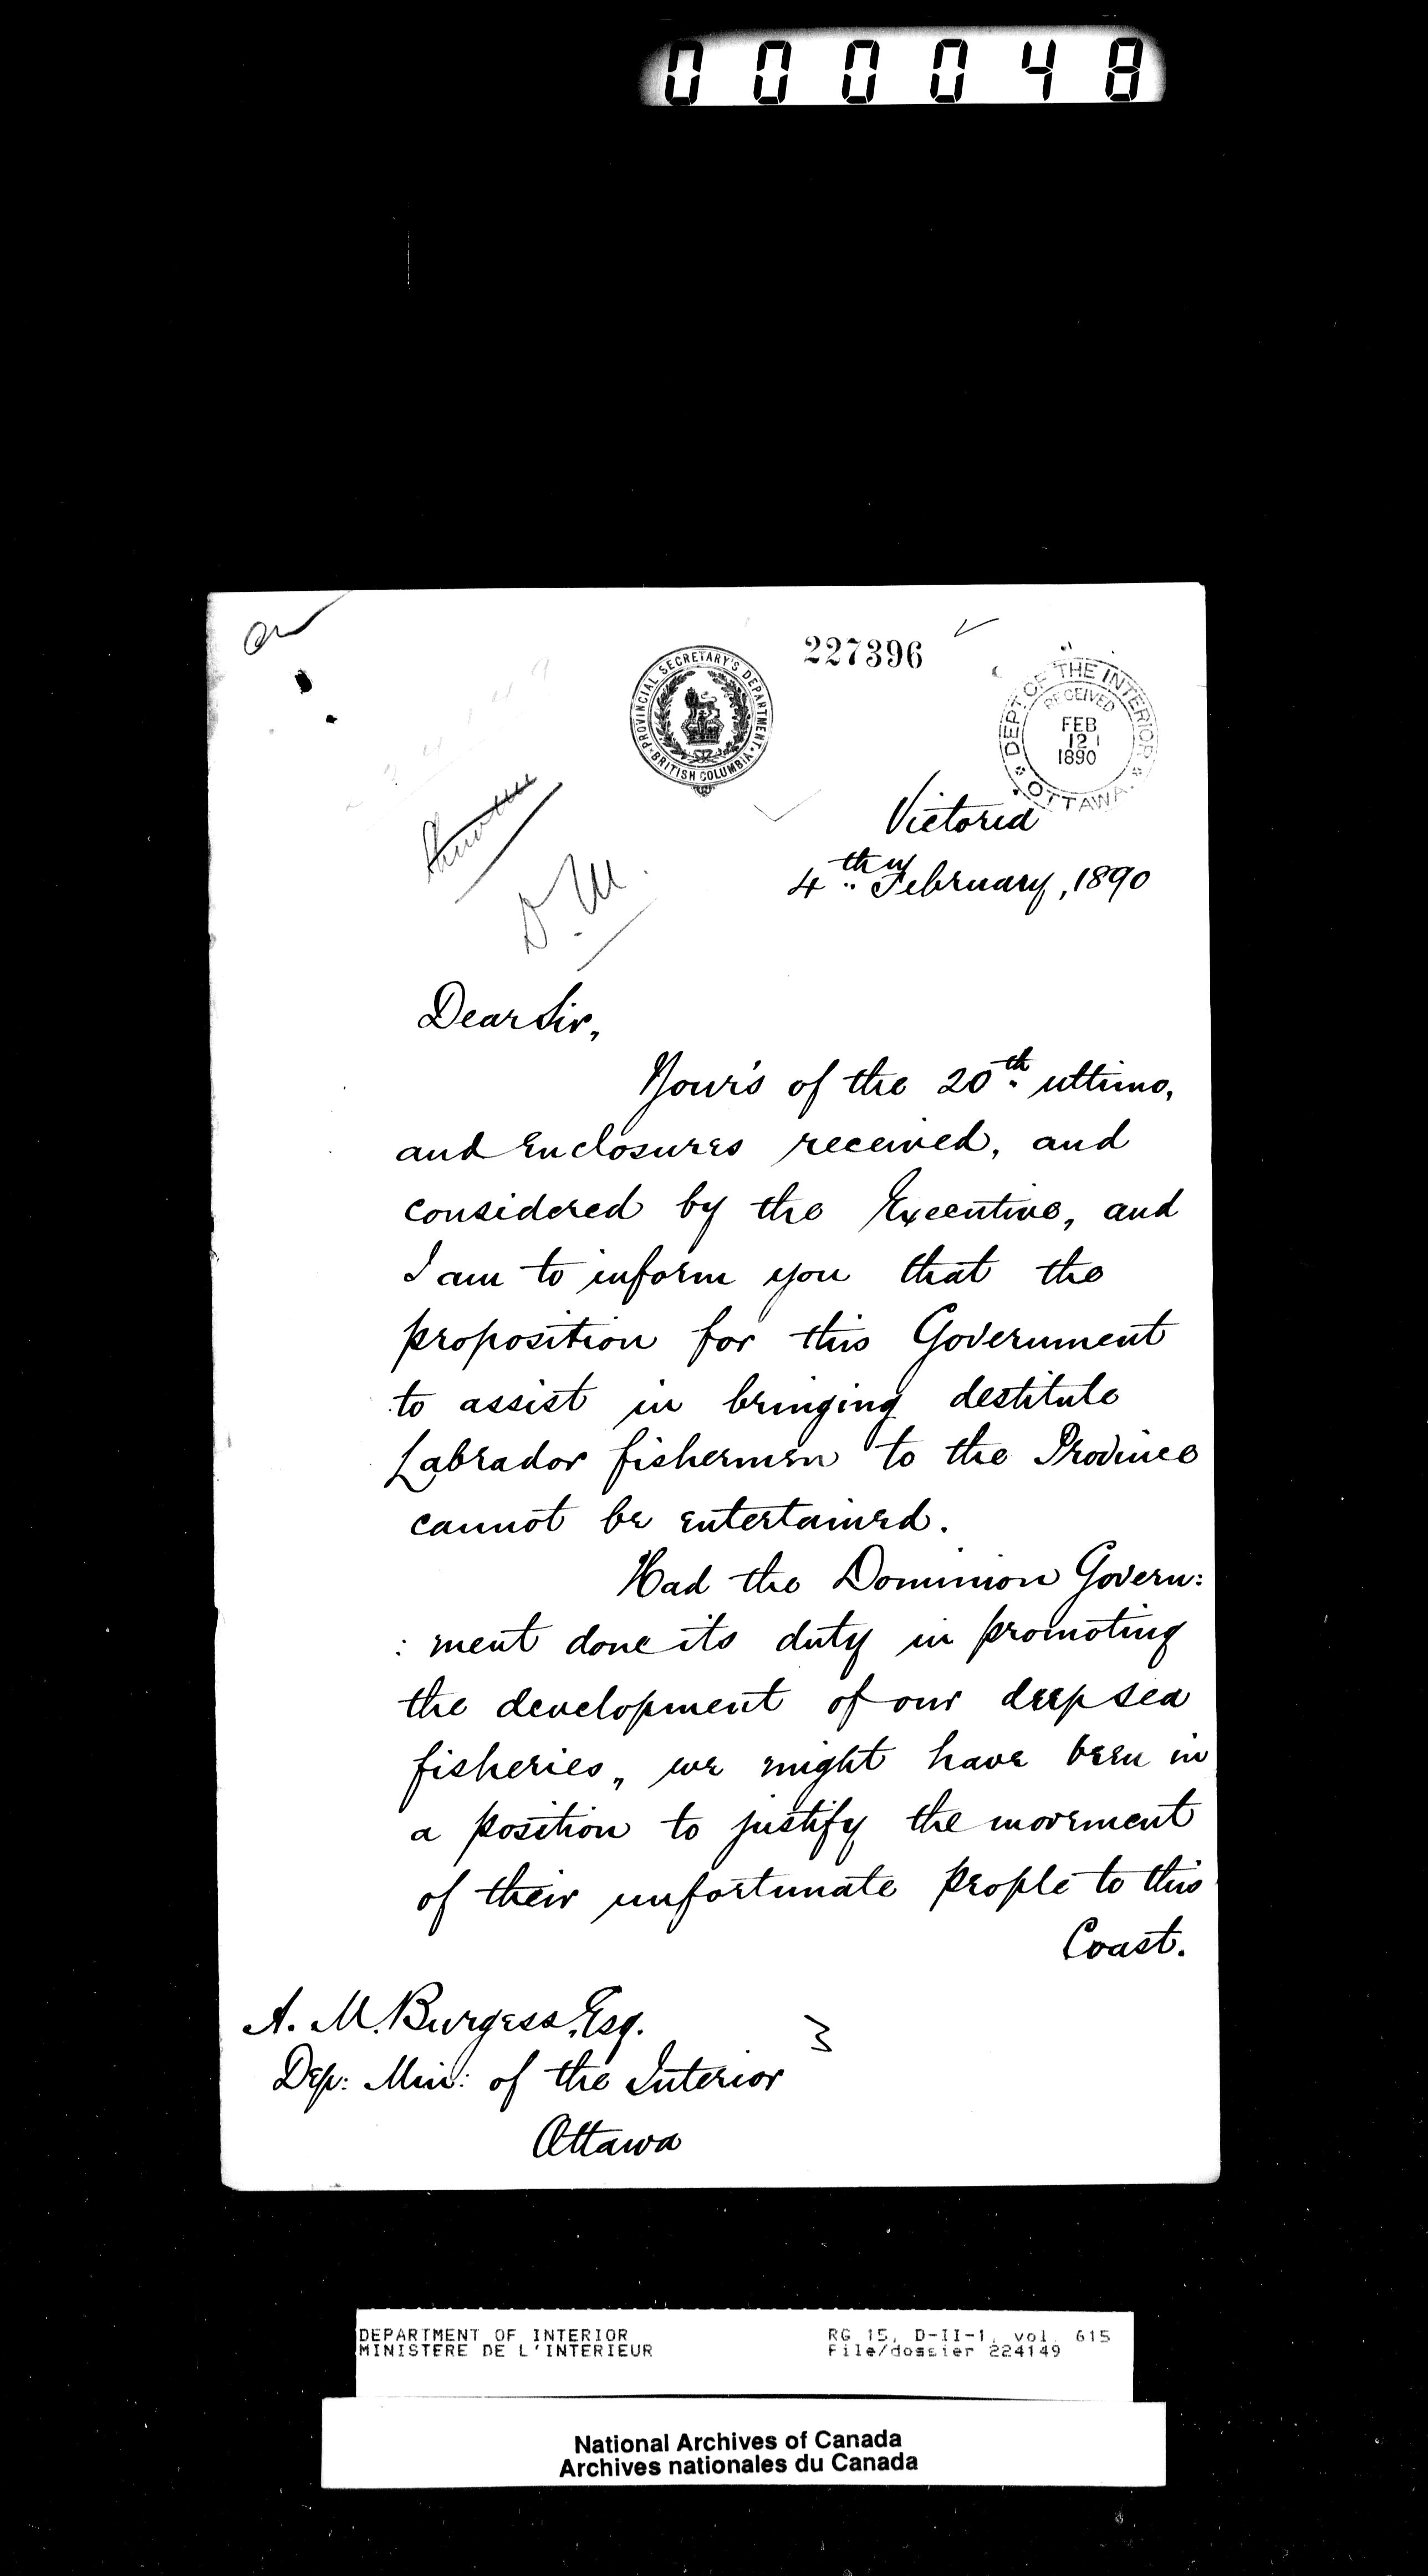 000048
227396
PROVINCIAL SECRETARY'S DEPARTMENT.
BRITISH COLUMBIA
DEPT. OF THE INTERIOR
RECEIVED
FEB
12
1890
OTTAWA.
Victoria
4th February, 1890
D.M.
Dear Sir,
Your's of the 20th ultimo,
and Enclosures received, and
considered by the Executive, and
I am to inform you that the
proposition for this Government
to assist in bringing destitute
Labrador fishermen to the Province
cannot be entertained.
Had the Dominion Govern:
: ment done its duty in promoting
the development of our deep sea
fisheries, we might have been in
a position to justify the movement
of their unfortunate people to this
Coast.
A. M. Burgess, Esq.
Dep: Min: of the Interior
Ottawa
DEPARTMENT OF INTERIOR RG 15, D-II-1, vol. 615
MINISTERE DE L'INTERIEUR File/dossier 224149
National Archives of Canada
Archives nationales du Canada